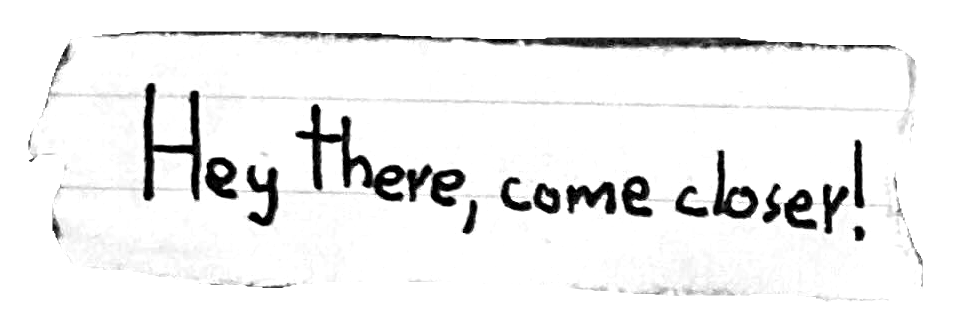 Hey there, come closer!